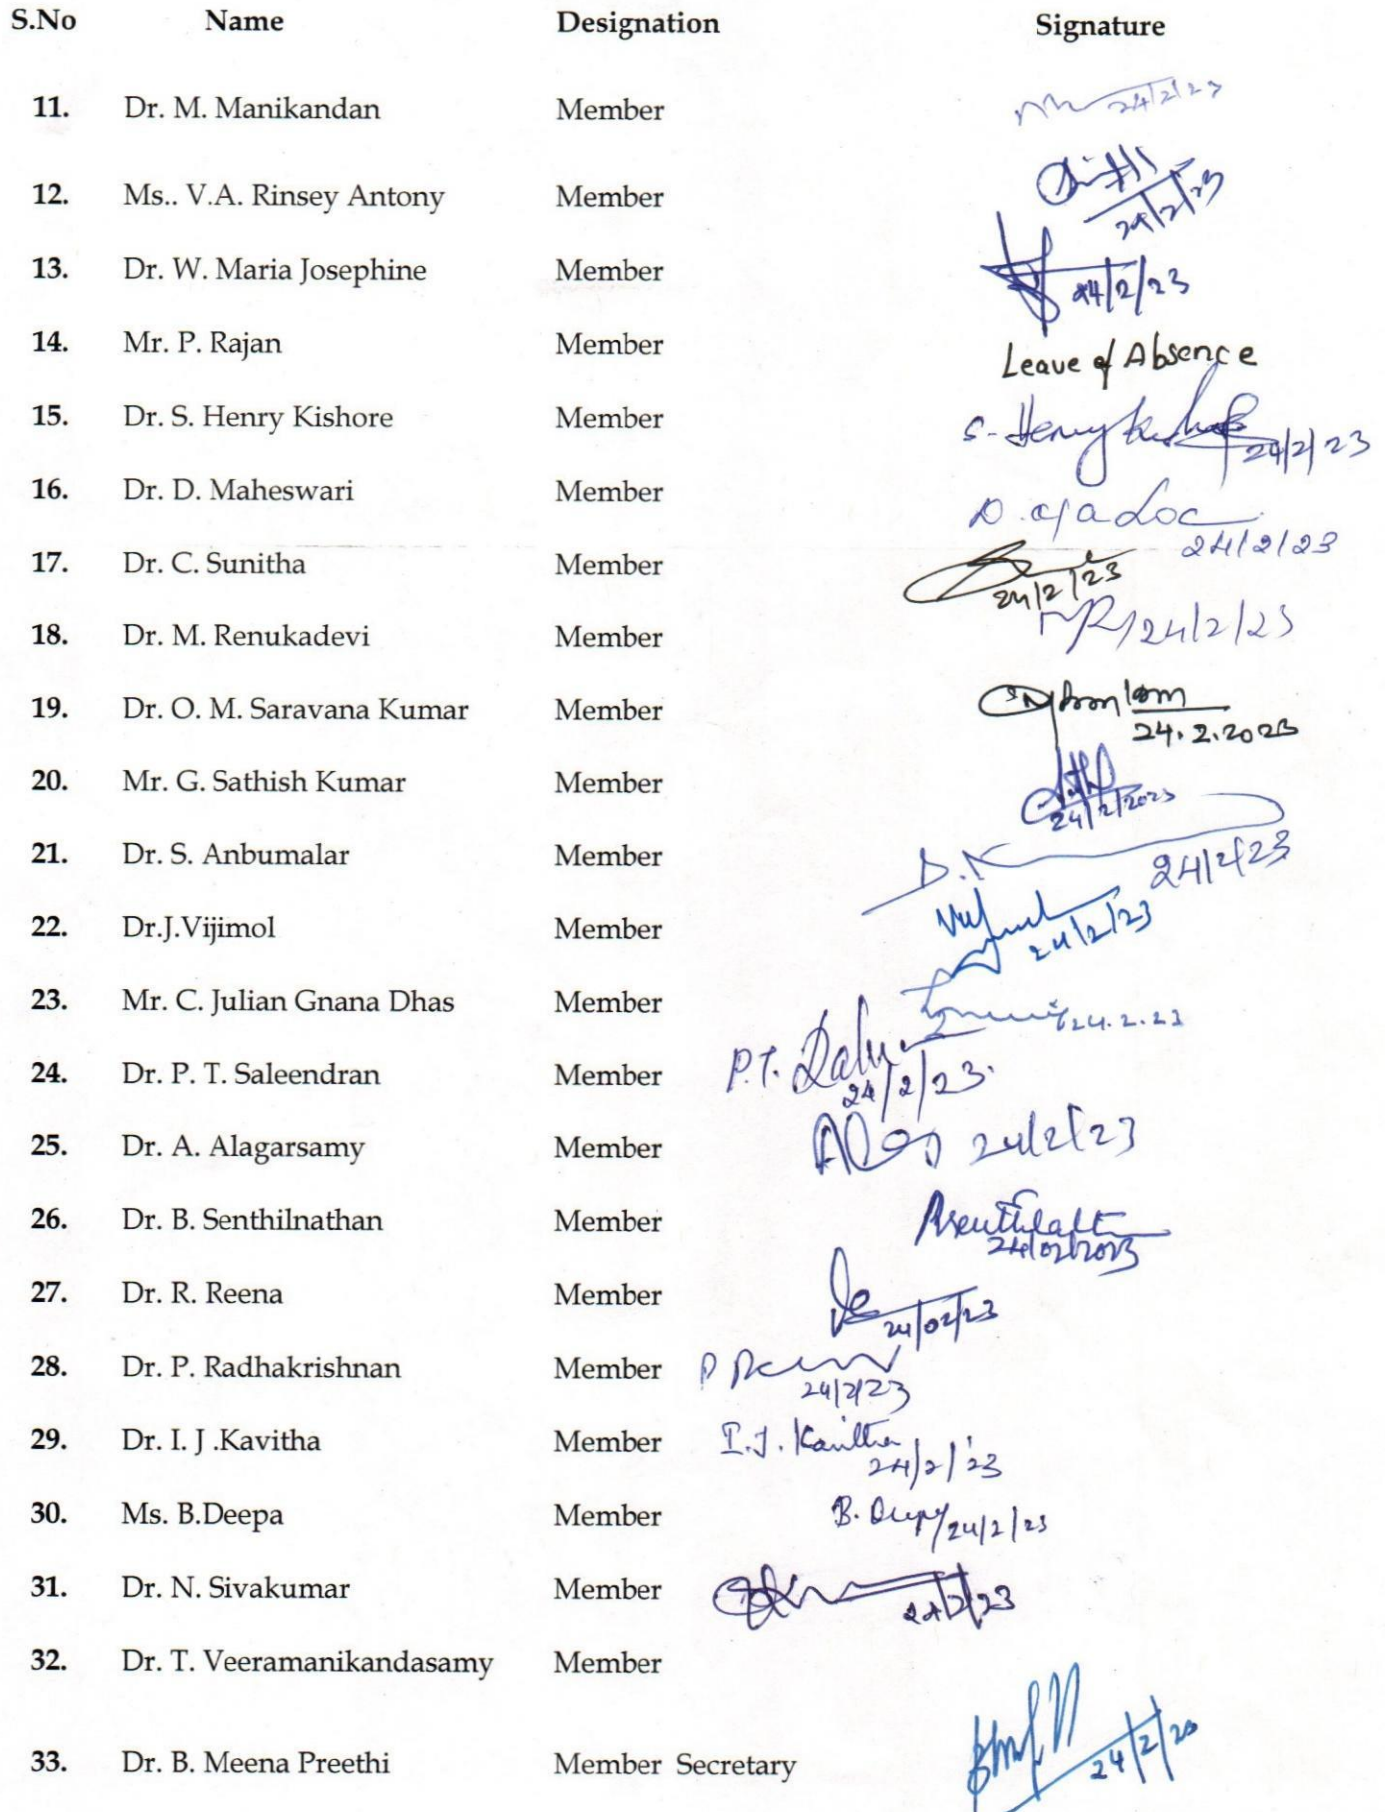 S.No Name Designation Signature
11. Dr. M. Manikandan Member 24/2/23
12. Ms.. V.A. Rinsey Antony Member 24/2/23
13. Dr. W. Maria Josephine Member 24/2/23
14. Mr. P. Rajan Member Leave of Absence
15. Dr. S. Henry Kishore Member S. Henry Kishore 24/2/23
16. Dr. D. Maheswari Member 24/2/23
17. Dr. C. Sunitha Member 24/2/23
18. Dr. M. Renukadevi Member 24/2/23
19. Dr. O. M. Saravana Kumar Member 24.2.2023
20. Mr. G. Sathish Kumar Member 24/2/2023
21. Dr. S. Anbumalar Member 24/2/23
22. Dr.J.Vijimol Member 24/2/23
23. Mr. C. Julian Gnana Dhas Member 24.2.23
24. Dr. P. T. Saleendran Member P.T. 24/2/23.
25. Dr. A. Alagarsamy Member 24/2/23
26. Dr. B. Senthilnathan Member 24/02/2023
27. Dr. R. Reena Member 24/02/23
28. Dr. P. Radhakrishnan Member 24/2/23
29. Dr. I. J .Kavitha Member I.J. Kavitha 24/2/23
30. Ms. B.Deepa Member B. Deepa 24/2/23
31. Dr. N. Sivakumar Member 24/2/23
32. Dr. T. Veeramanikandasamy Member
33. Dr. B. Meena Preethi Member Secretary 24/2/23